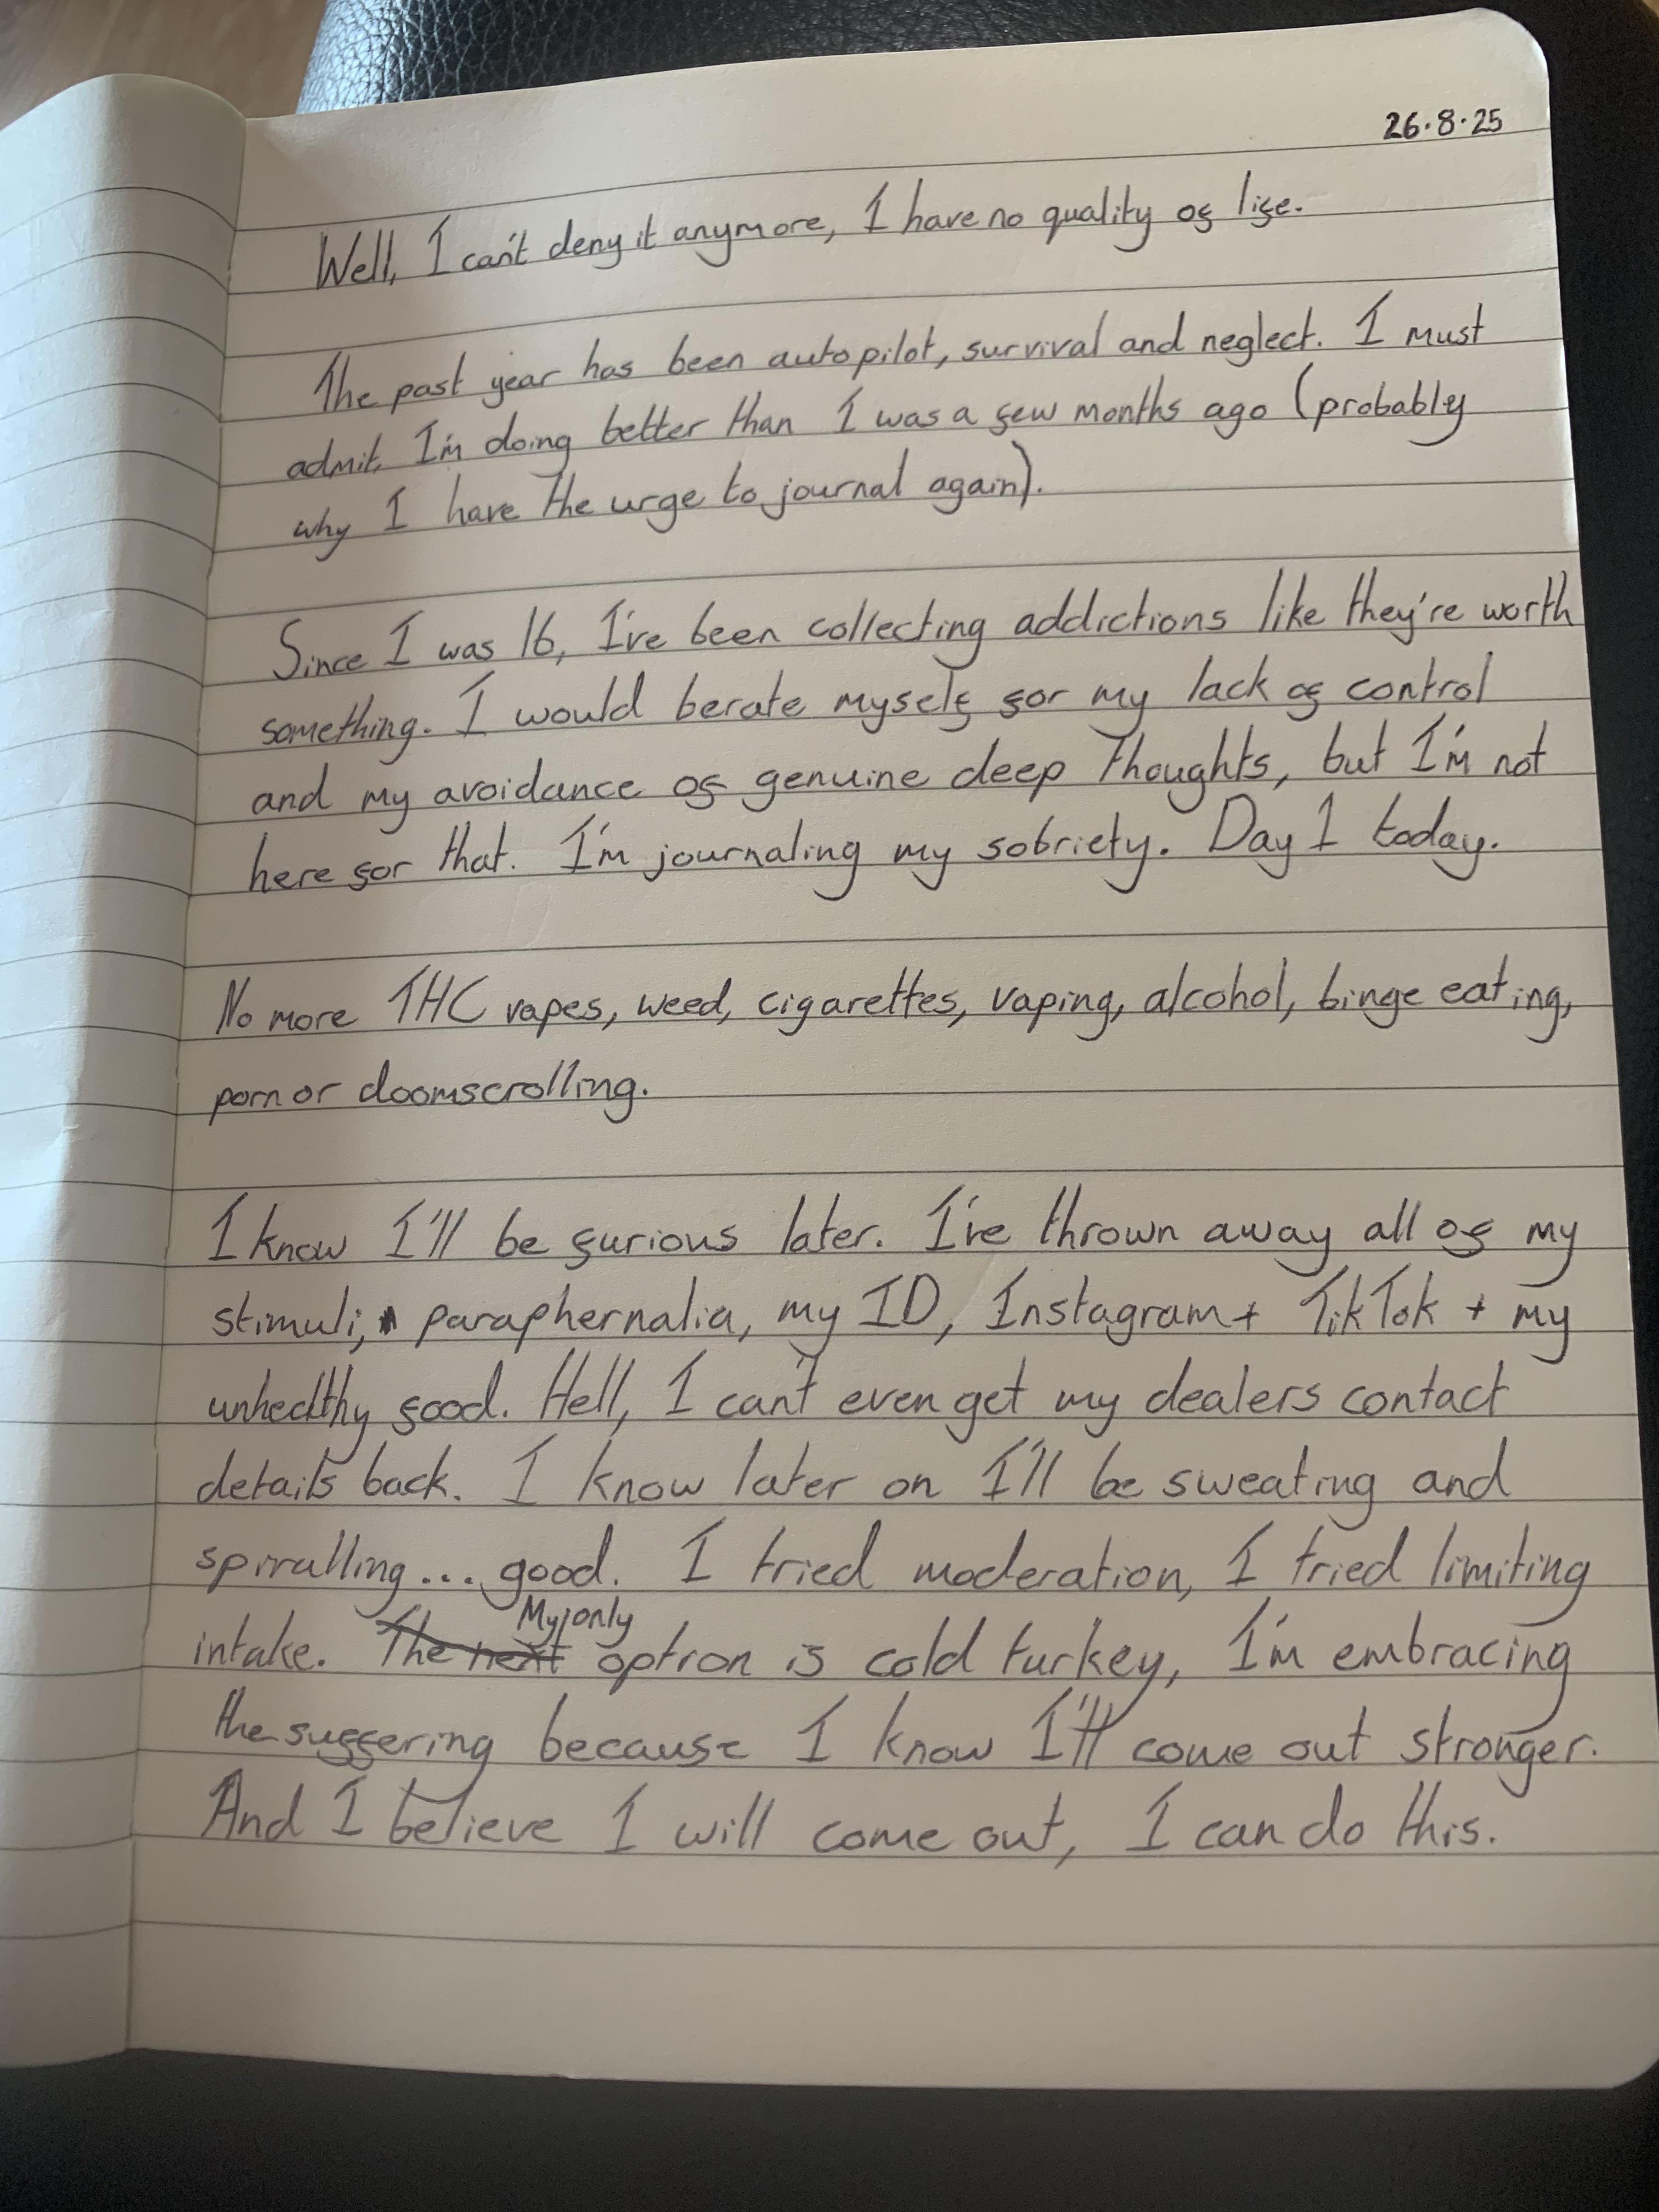 26.8.25
Well, I can't deny it anymore, I have no quality of life.
The past year has been autopilot, survival and neglect. I must
admit, I'm doing better than I was a few months ago (probably
why I have the urge to journal again).
Since I was 16, I've been collecting addictions like they're worth
something. I would berate myself for my lack of control
and my avoidance of genuine deep thoughts, but I'm not
here for that. I'm journaling my sobriety. Day 1 today.
No more THC vapes, weed, cigarettes, vaping, alcohol, binge eating,
porn or doomscrolling.
I know I'll be furious later. I've thrown away all of my
stimuli, paraphernalia, my ID, Instagram + TikTok + my
unhealthy food. Hell, I can't even get my dealers contact
details back. I know later on I'll be sweating and
spiralling... good. I tried moderation, I tried limiting
My only
intake. The next option is cold turkey, I'm embracing
the suffering because I know I'll come out stronger.
And I believe I will come out, I can do this.